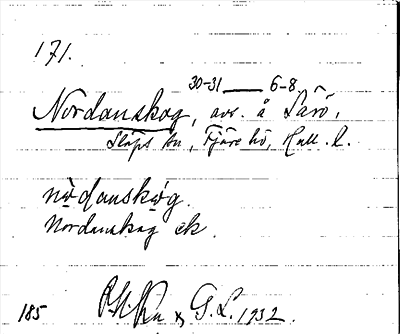 171.
30-31 — 6-8
Nordanskog, avs. å Särö,
Släps sn, Fjäre hd, Hall. l.
nòdanskòg.
Nordanskog ek.
185 & G.L. 1932.